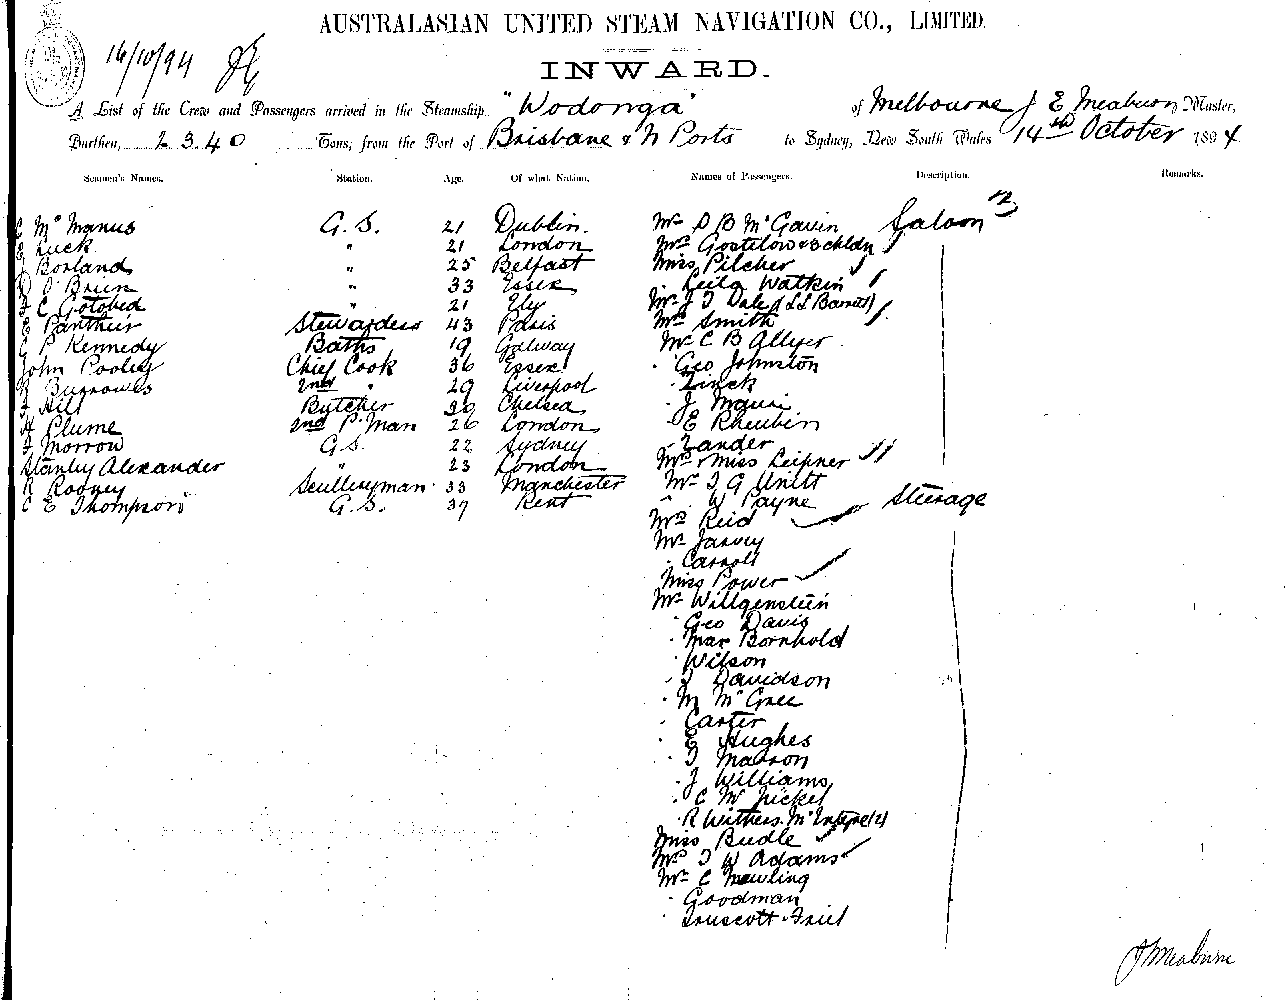 AUSTRALASIAN UNITED STEAM NAVIGATION CO., LIMITED.
16/10/94
INWARD.
A List of the Crew and Passengers arrived in the Steamship "Wodonga" of Melbourne J E Meaburn Master,
Burthen, 2340 Tons, from the Port of Brisbane & N Ports to Sydney, New South Wales 14th October 1894
Seamen's Names. Station. Age. Of what Nation. Names of Passengers. Description. Remarks.
C McManus G.S. 21 Dublin. Mr D B McGavin Saloon
E Luck " 21 London Mrs Gostelow & 3 chldn
Borland " 25 Belfast Miss Pilcher
O'Brien " 33 Essex " Leila Watkin
C Gotobed " 21 Ely Mr J T Dale
E Panthur Stewardess 43 Paris Mrs Smith
P Kennedy Baths 19 Galway Mr C B Allyer
John Pooley Chief Cook 36 Essex " Geo Johnston
Burrowes 2nd " 29 Liverpool " Zinck
Hill Butcher 20 Chelsea " J Mauri
H Plume 2nd P. Man 26 London " E Rheubin
Morrow G.S. 22 Sydney " Zander
Stanley Alexander " 23 London Mrs & Miss Leipner
R Rooney Sculleryman 33 Manchester Mr T G Unitt
C E Thompson G.S. 37 Kent " W Payne Steerage
Mrs Reid
Mr Jarvey
" Carroll
Miss Power
Mr Willgenstein
" Geo Davis
" Max Bornhold
" Wilson
" J Davidson
" M McGree
" Carter
" E Hughes
" T Marron
" J Williams
" C W Jickel
" R Withers. McIntyre (2)
Miss Budle
Mrs T W Adams
Mr C Mewling
" Goodman
" Truscott. Friel
J Meaburn